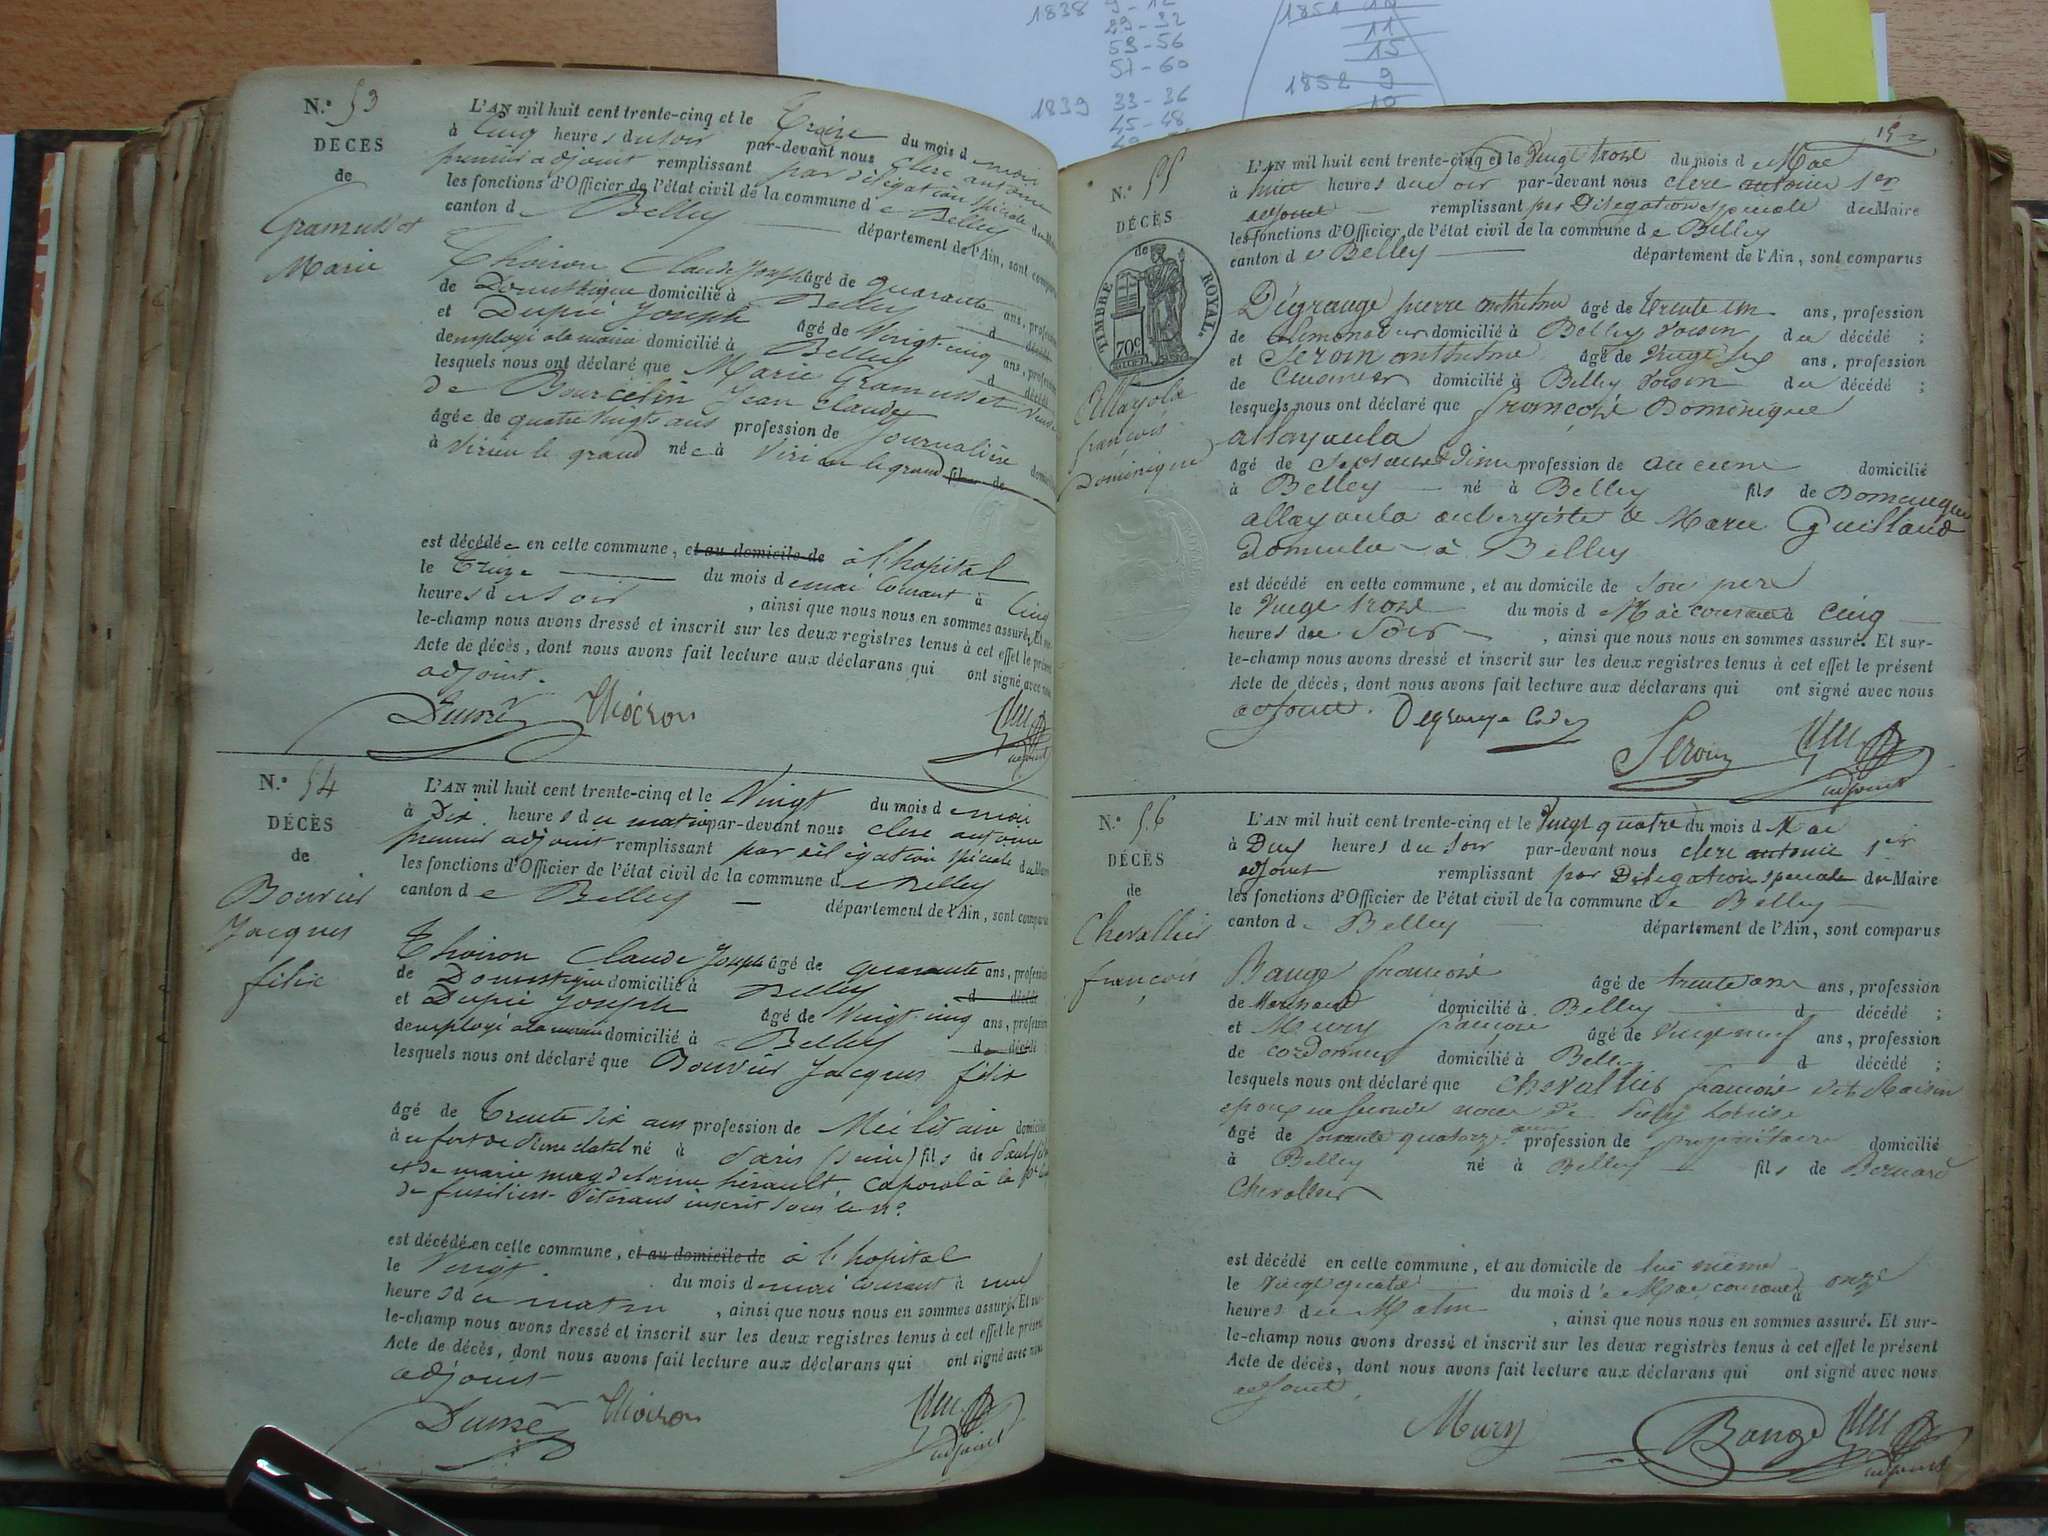 1838 9-12
29-32
53-56
57-60
1839 33-36
45-48
1851 10
11
15
1852 9
10
N.º 53
DÉCÈS
de
Gramusset
Marie
L'AN mil huit cent trente-cinq et le Treize du mois de mai
à cinq heures du soir par-devant nous clerc antoine
premier adjoint remplissant par délégation spéciale du Maire
les fonctions d'Officier de l'état civil de la commune de Belley
canton de Belley département de l'Ain, sont comparus
Thoiron Claude Joseph âgé de quarante ans, profession
de Domestique domicilié à Belley d décédé
et Dupié Joseph âgé de Vingt-cinq ans, profession
de employé à la mairie domicilié à Belley d décédé
lesquels nous ont déclaré que Marie Gramusset veuve
de Bourcelin Jean Claude
âgée de quatre vingts ans profession de Journalière domicilié
à Virieu le grand née à Virieu le grand fil de
est décédée en cette commune, et au domicile de à l'hopital
le Treize du mois de mai Courant à Cinq
heures du soir, ainsi que nous nous en sommes assuré. Et sur-
le-champ nous avons dressé et inscrit sur les deux registres tenus à cet effet le présent
Acte de décès, dont nous avons fait lecture aux déclarans qui ont signé avec nous
adjoint.
Thoiron
adjoint
N.º 54
DÉCÈS
de
Bouvier
Jacques
félix
L'AN mil huit cent trente-cinq et le Vingt du mois de mai
à Dix heures du matin par-devant nous clerc antoine
premier adjoint remplissant par délégation spéciale du Maire
les fonctions d'Officier de l'état civil de la commune de Belley
canton de Belley département de l'Ain, sont comparus
Thoiron Claude Joseph âgé de quarante ans, profession
de Domestique domicilié à Belley d décédé
et Dupié Joseph âgé de Vingt-cinq ans, profession
de employé à la mairie domicilié à Belley d décédé
lesquels nous ont déclaré que Bouvier Jacques félix
âgé de Trente six ans profession de Militaire domicilié
à au fort de Pierre chatel né à Paris (seine) fils de Paul
et de marie magdelaine hérault caporal à la
de fusiliers vétérans inscrit sous le nº
est décédé en cette commune, et au domicile de à l'hopital
le Vingt du mois de mai courant à neuf
heures du matin, ainsi que nous nous en sommes assuré. Et sur-
le-champ nous avons dressé et inscrit sur les deux registres tenus à cet effet le présent
Acte de décès, dont nous avons fait lecture aux déclarans qui ont signé avec nous
adjoint
Thoiron
adjoint
N.º 55
DÉCÈS
de
TIMBRE ROYAL.
70c
Allayola
françois
Dominique
L'AN mil huit cent trente-cinq et le Vingt trois du mois de Mai
à huit heures du soir par-devant nous clerc antoine 1er
adjoint remplissant par Délégation spéciale du Maire
les fonctions d'Officier de l'état civil de la commune de Belley
canton de Belley département de l'Ain, sont comparus
Dégrange pierre anthelme âgé de trente un ans, profession
de limonadier domicilié à Belley voisin du décédé ;
et Seroin anthelme âgé de vingt six ans, profession
de Cuisinier domicilié à Belley voisin du décédé ;
lesquels nous ont déclaré que françois Dominique
allayaula
âgé de profession de aucune domicilié
à Belley né à Belley fils de Dominique
allayaula aubergiste & Marie Guilland
à Belley
est décédé en cette commune, et au domicile de son père
le vingt trois du mois de Mai courant à cinq
heures de Soir, ainsi que nous nous en sommes assuré. Et sur-
le-champ nous avons dressé et inscrit sur les deux registres tenus à cet effet le présent
Acte de décès, dont nous avons fait lecture aux déclarans qui ont signé avec nous
adjoint. Degrange
Seroin
adjoint
N.º 56
DÉCÈS
de
Chevallier
françois
L'AN mil huit cent trente-cinq et le Vingt quatre du mois d Mai
à Deux heures du soir par-devant nous clerc antoine 1er
adjoint remplissant par Délégation spéciale du Maire
les fonctions d'Officier de l'état civil de la commune de Belley
canton de Belley département de l'Ain, sont comparus
Bauge françois âgé de trente ans, profession
de Marchand domicilié à Belley d décédé ;
et Mury françois âgé de vingt neuf ans, profession
de cordonnier domicilié à Belley d décédé ;
lesquels nous ont déclaré que Chevallier françois
époux en seconde noce de Louise
âgé de soixante quatorze ans profession de propriétaire domicilié
à Belley né à Belley fils de Bernard
Chevallier
est décédé en cette commune, et au domicile de lui même
le vingt quatre du mois de Mai courant à onze
heures du Matin, ainsi que nous nous en sommes assuré. Et sur-
le-champ nous avons dressé et inscrit sur les deux registres tenus à cet effet le présent
Acte de décès, dont nous avons fait lecture aux déclarans qui ont signé avec nous
adjoint.
Mury Bauge
adjoint